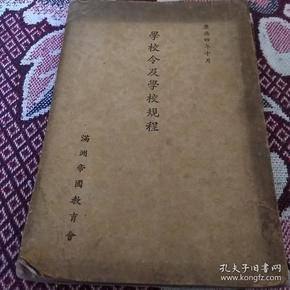 康德四年十月
學校令及學校規程
滿洲帝國教育會
孔夫子旧书网